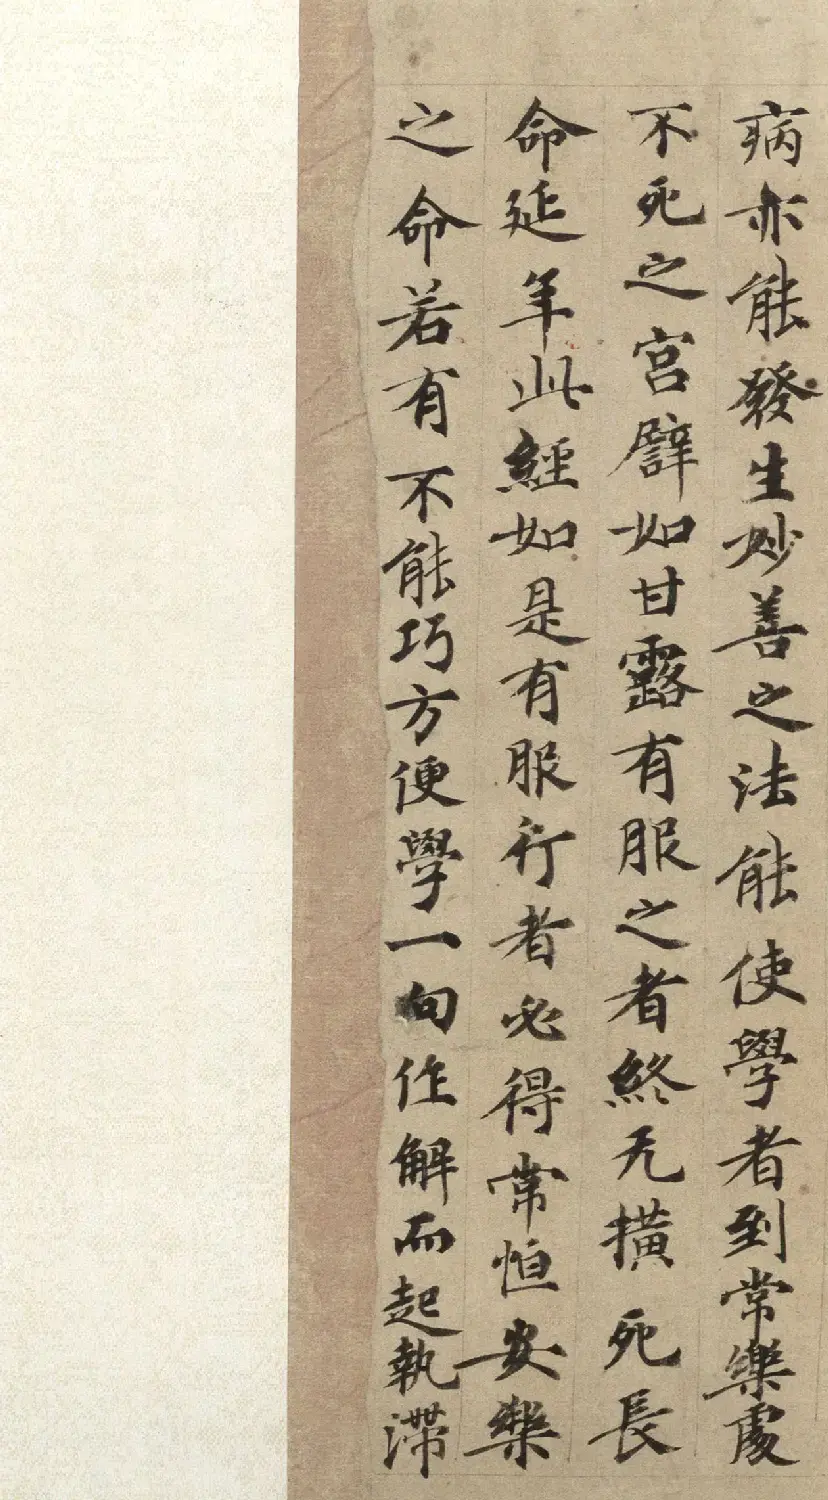 病亦能發生妙善之法能使學者到常樂處
不死之宮譬如甘露有服之者終无撗死長
命延年此經如是有服行者必得常恒安樂
之命若有不能巧方便學一句作解而起執滯